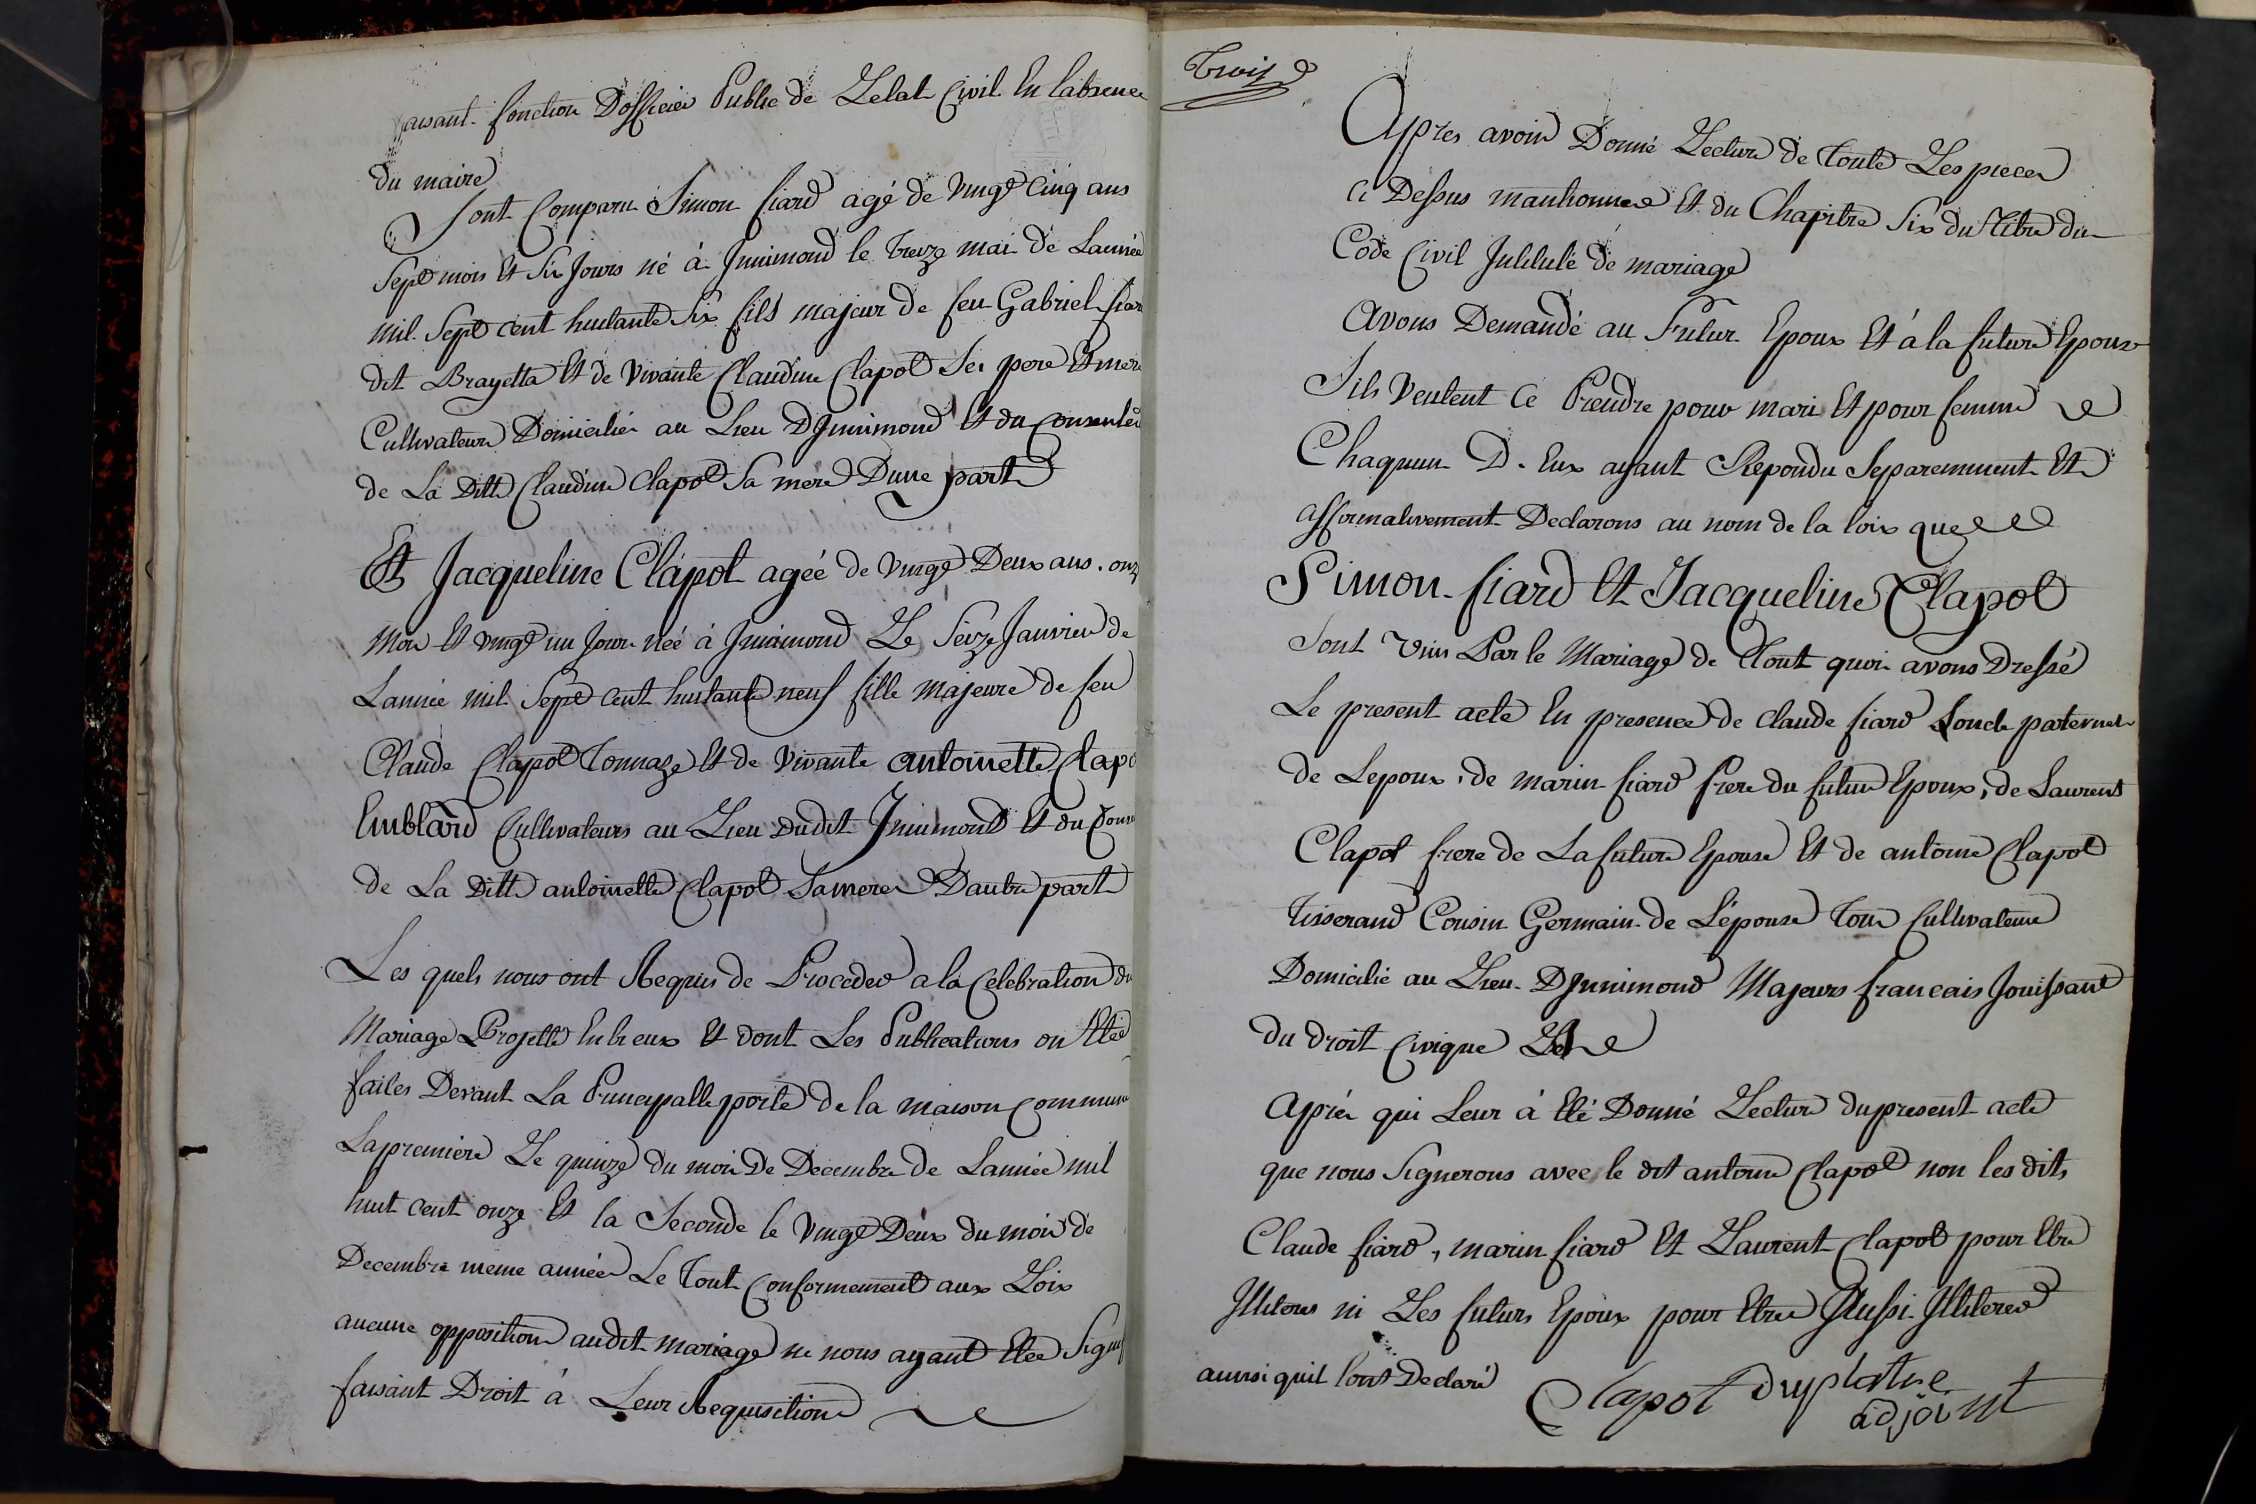 faisant fonction Dofficier Public de Letat Civil En Labsence
du maire
Sont Comparu Simon fiard agé de vingt Cinq ans
Sept mois Et Six Jours né à Jnnimond le treize mai de Lannée
mil Sept cent huitante Six fils majeur de feu Gabriel fiard
dit Brayetta Et de vivante Claudine Clapot Ses pere Et mere
Cultivateurs Domicilié au Lieu DJnnimond Et du Consent
de La Ditte Claudine Clapot Sa mere Dune part
Et Jacqueline Clapot agée de vingt Deux ans onze
Mois Et vingt un Jour née à Jnnimond Le Seize Janvier de
Lannée mil Sept cent huitante neuf fille majeure de feu
Claude Clapot Tonnaze Et de vivante antoinette Clapot
Emblard Cultivateurs au Lieu dudit Jnnimond Et du Cons
de La Ditte antoinette Clapot Sa mere Dautre part
Les quels nous ont Requis de Proceder a la Celebration du
Mariage Projetté Entreux Et dont Les Publications on Etée
faites Devant La Principalle porte de la maison commune
La premiere Le quinze du mois de Decembre de Lannée mil
huit cent onze Et la Seconde le vingt Deux du mois de
Decembre meme année Le tout Conformement aux Loix
aucune opposition audit mariage ne nous ayant Etée Signif
faisant Droit à Leur Requisition
Trois
Apres avoir Donné Lecture de toute Les pieces
Ci Dessus mantionnée Et du Chapitre Six du titre du
Code Civil Jntitulé de mariage
Avons Demandé au Futur Epoux Et à la future Epouse
Sils veulent Ce Prendre pour mari Et pour femme
Chaquun D. Eux ayant Repondu Separemment Et
affirmativement Declarons au nom de la loix que
Simon fiard Et Jacqueline Clapot
Sont Unis Par le Mariage de tout quoi avons Dressé
Le present acte En presence de Claude fiard Loncle paternel
de Lepoux, de marin fiard frere du futur Epoux, de Laurent
Clapot frere de La future Epouse Et de antoine Clapot
Tisserand Cousin Germain de L'épouse tous Cultivateurs
Domicilié au Lieu DJnnimond Majeurs francais Jouissant
du droit civique
Aprés qui Leur à Eté Donné Lecture du present acte
que nous Signerons avec le dit antoine Clapot non les dits
Claude fiard, marin fiard Et Laurent Clapot pour Etre
Jlliteres ni Les futurs Epoux pour Etre Aussi Jlliteres
ainsi quil lont Declaré
Clapot Duplatre
adjoint